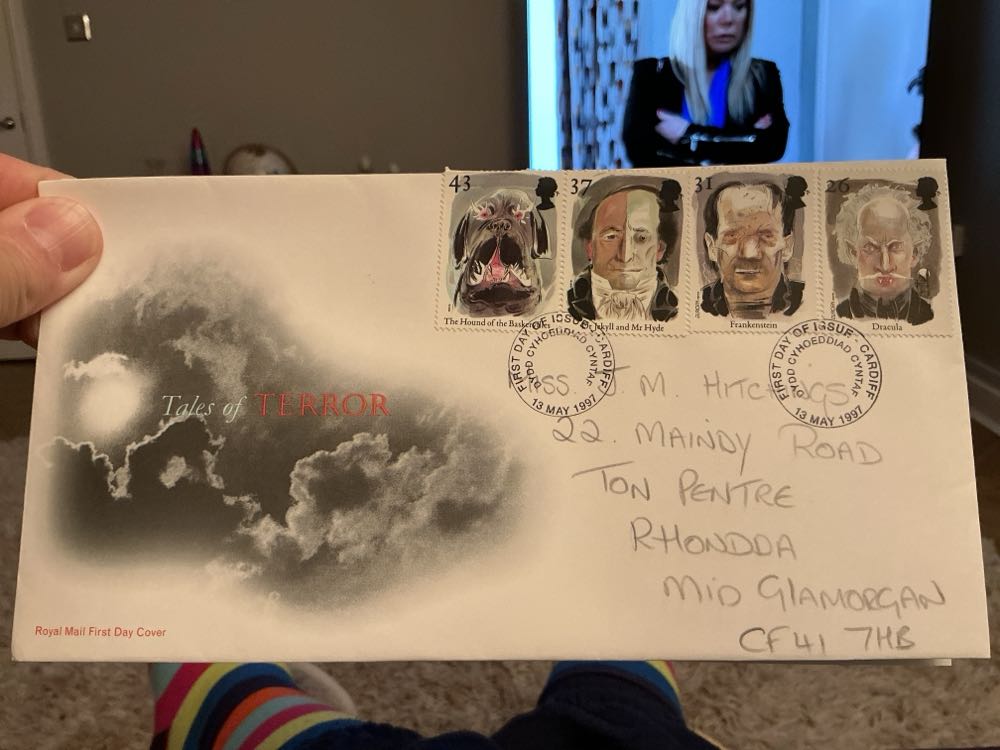 43
37
31
26
The Hound of the Baskervilles
Dr Jekyll and Mr Hyde
Frankenstein
Dracula
FIRST DAY OF ISSUE · CARDIFF
DYDD CYHOEDDIAD CYNTAF
13 MAY 1997
FIRST DAY OF ISSUE · CARDIFF
DYDD CYHOEDDIAD CYNTAF
13 MAY 1997
Tales of TERROR
MISS J. M. HITCHINGS
22. MAINDY ROAD
TON PENTRE
RHONDDA
MID GLAMORGAN
CF41 7HB
Royal Mail First Day Cover